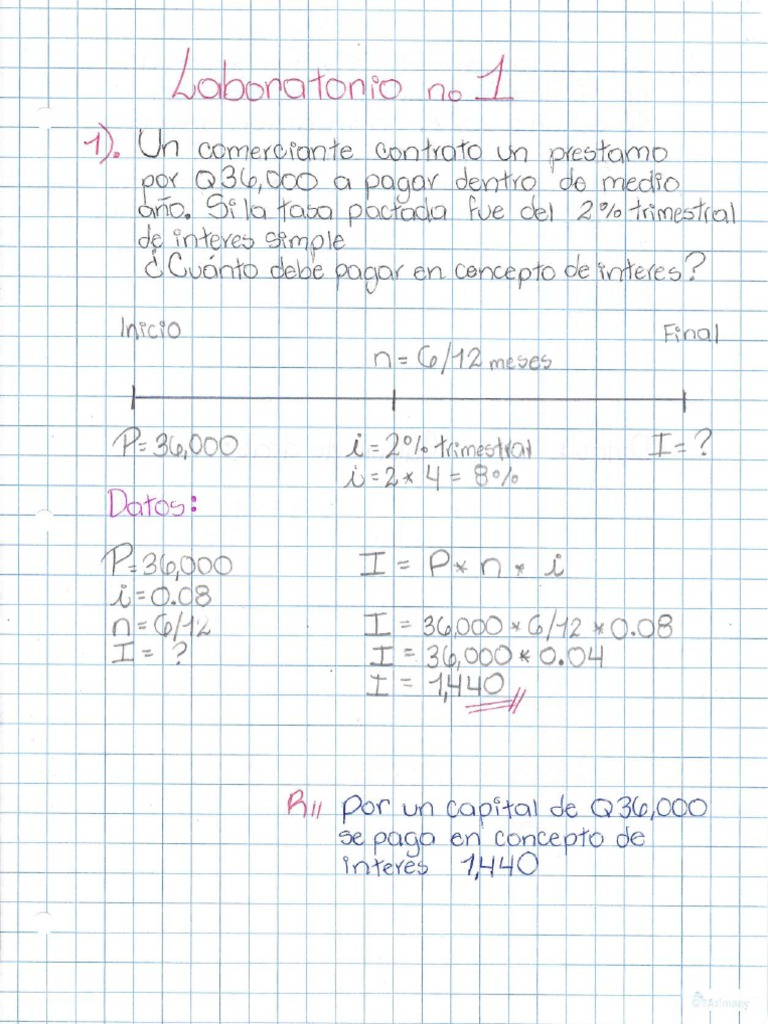 Laboratorio no 1
1). Un comerciante contrato un prestamo
por Q36,000 a pagar dentro de medio
año. Si la tasa pactada fue del 2% trimestral
de interes simple
¿Cuánto debe pagar en concepto de interes?
Inicio
Final
n = 6/12 meses
P= 36,000
i = 2% trimestral
I = ?
i = 2 * 4 = 8%
Datos:
P= 36,000
I = P * n * i
i = 0.08
n = 6/12
I = 36,000 * 6/12 * 0.08
I = ?
I = 36,000 * 0.04
I = 1,440
R// Por un capital de Q36,000
se paga en concepto de
interés 1,440
Arimany